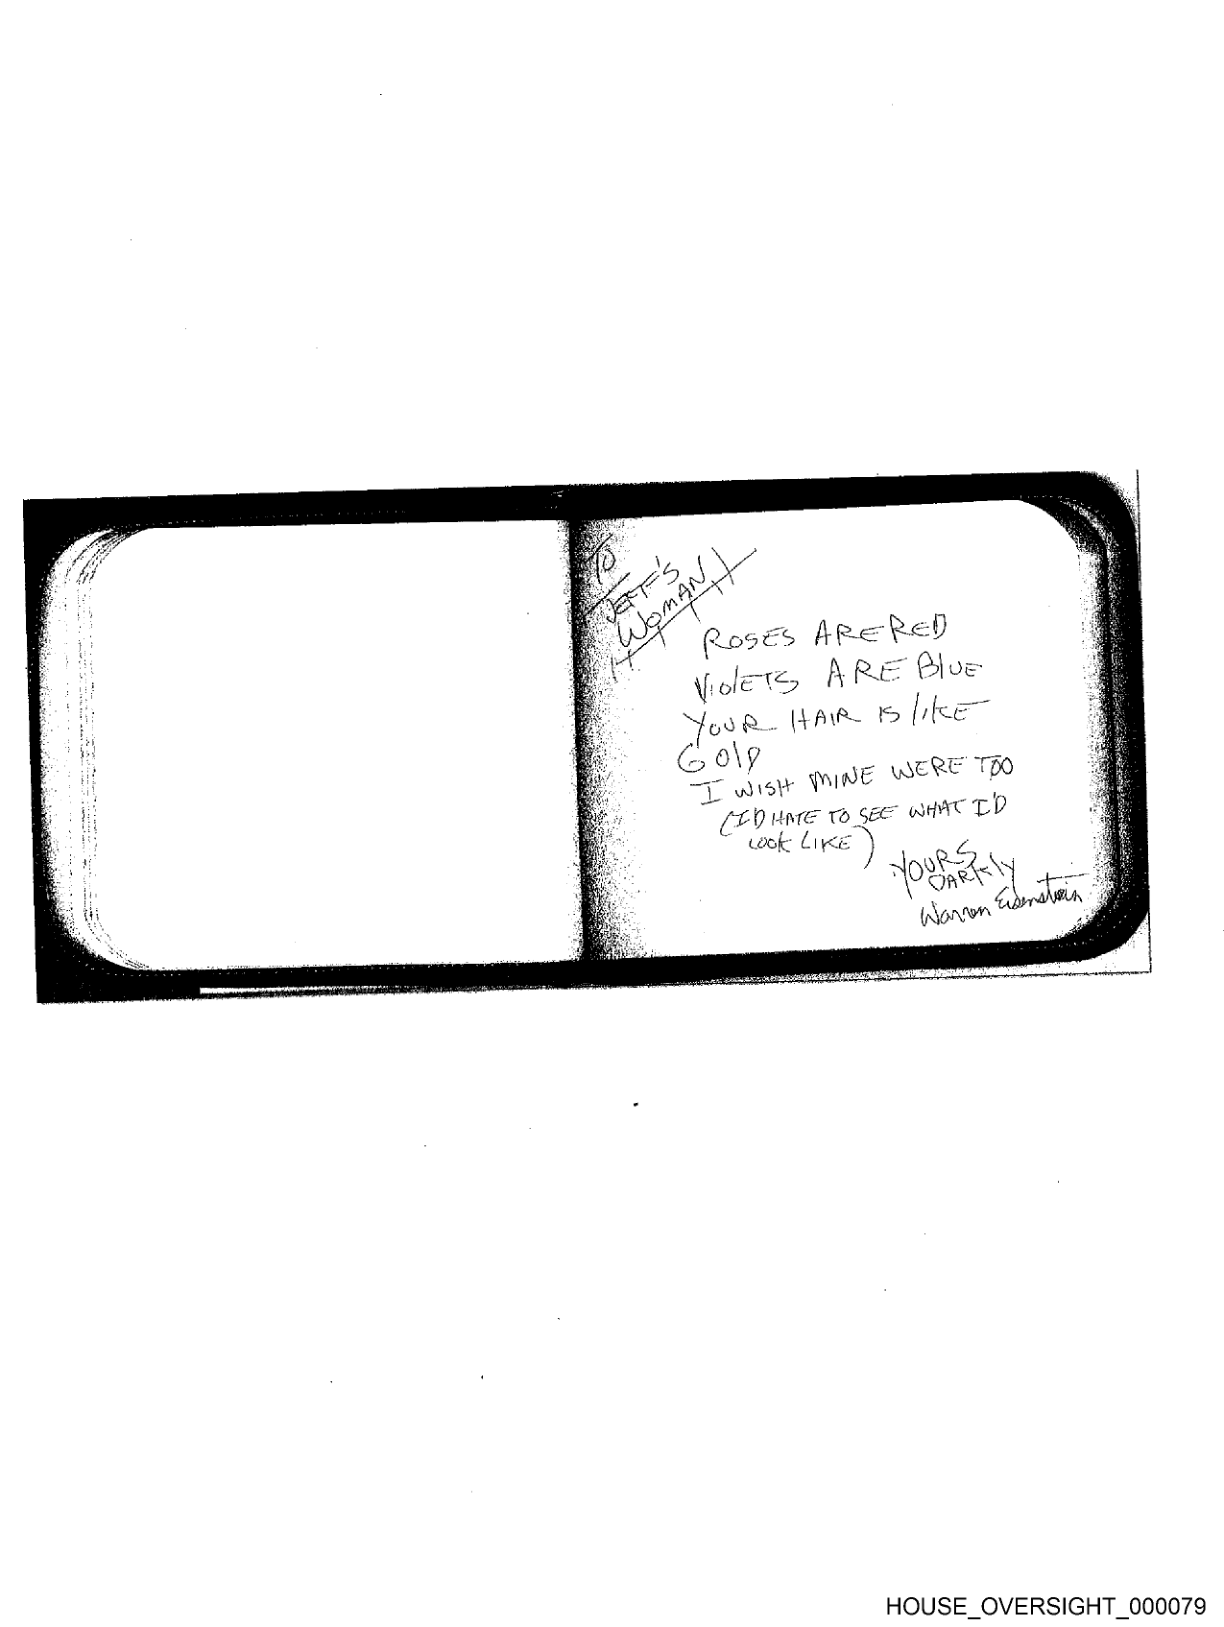 TO
JEFF'S
WOMAN
ROSES ARE RED
VIOLETS ARE BLUE
YOUR HAIR IS LIKE
GOLD
I WISH MINE WERE TOO
(I'D HATE TO SEE WHAT I'D
LOOK LIKE)
YOURS
DARKLY
Warren Eisenstein
HOUSE_OVERSIGHT_000079